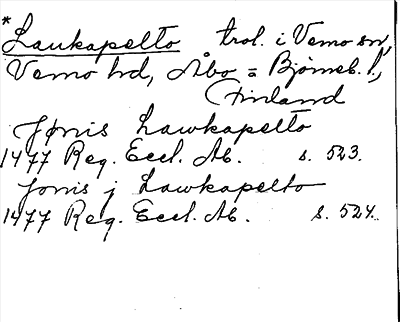 *
Laukapelto trol. i Vemo sn,
Vemo hd, Åbo = Björneb. l.,
Finland
Jønis Lawkapelto
1477 Reg. Eccl. Ab. s. 523.
Jonis j Lawkapelto
1477 Reg. Eccl. Ab. s. 524.